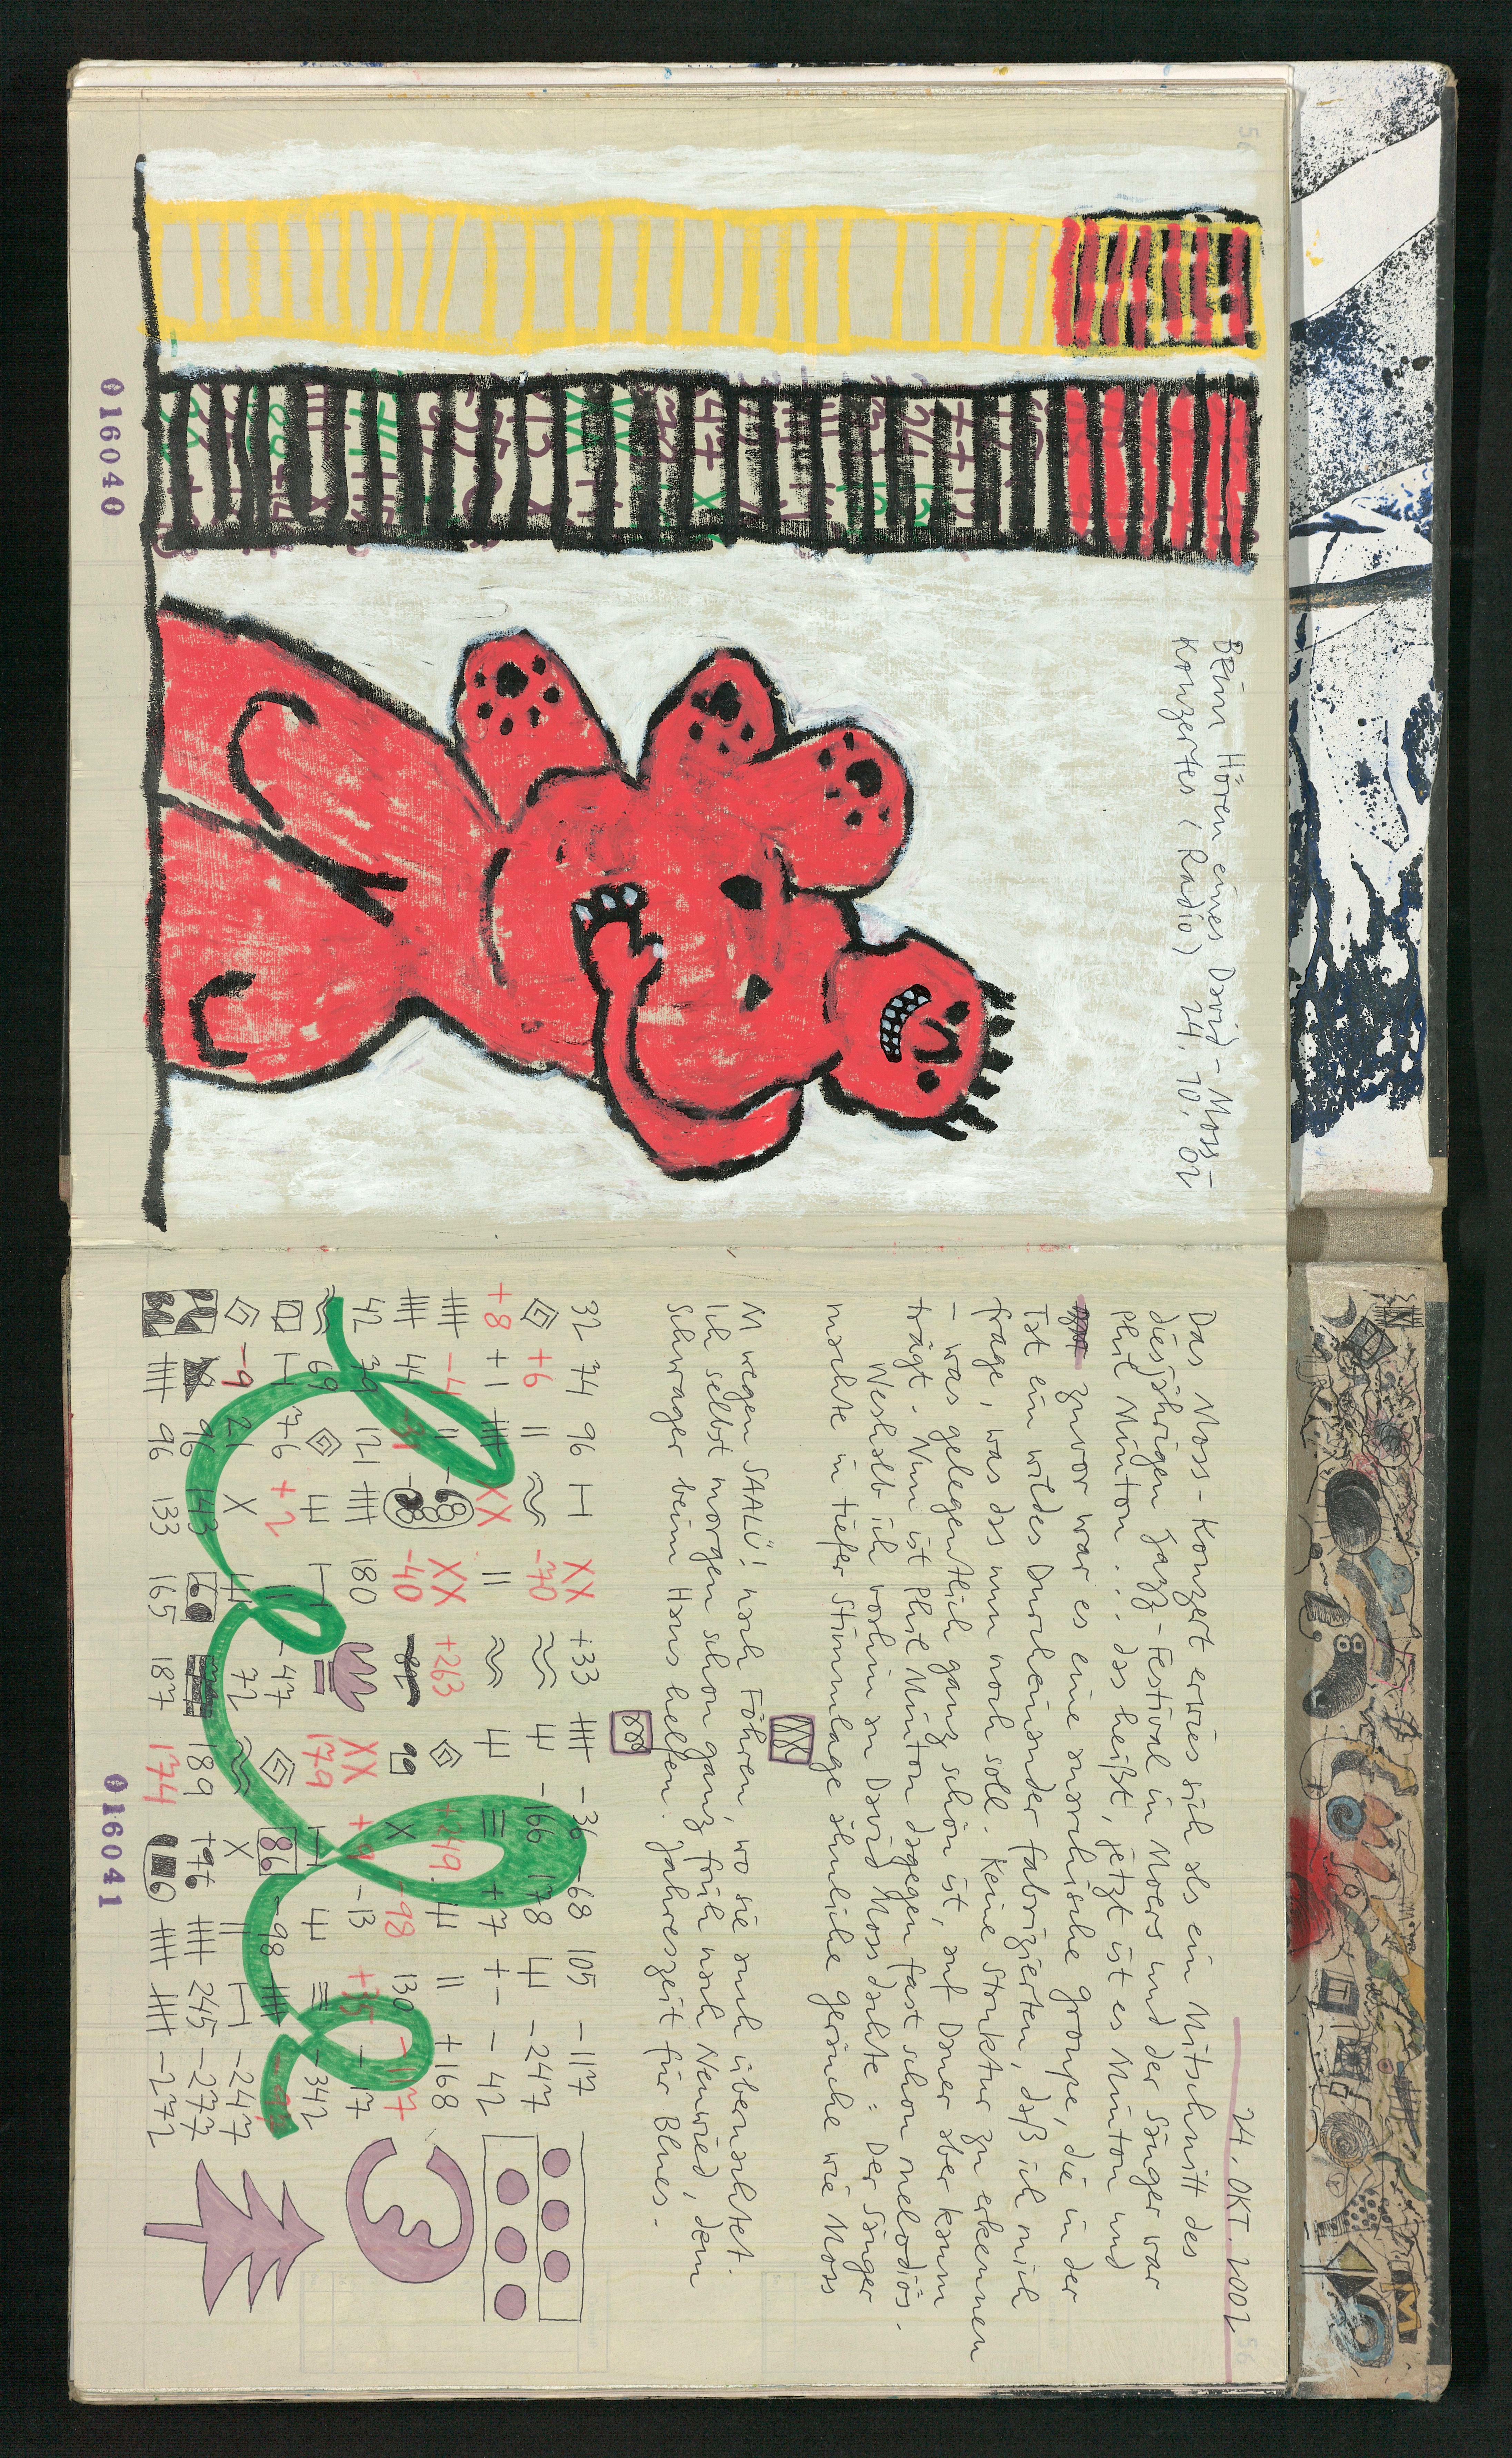 Beim Hören eines David-Moss-
Konzertes (Radio) 24.10.02
016040
24. OKT. 2002
Das Moss-Konzert erwies sich als ein Mitschnitt des
diesjährigen Jazz-Festival in Moers und der Sänger war
Phil Minton... das heißt, jetzt ist es Minton und
zuvor war es eine anarchische Groupe, die in der
Tat ein wildes Durcheinander fabrizierten, daß ich mich
frage, was das nun noch soll. Keine Struktur zu erkennen
- was gelegentlich ganz schön ist, auf Dauer aber kaum
trägt. Nun ist Phil Minton dagegen fast schon melodiös.
Weshalb ich vorhin an David Moss dachte: Der Sänger
machte in tiefer Stimmlage ähnliche Geräuche wie Moss
M wegen SAALÜ! nach Föhren, wo sie auch übernachtet.
Ich selbst morgen schon ganz früh nach Neuwied, dem
Schwager beim Haus helfen. Jahreszeit für Blues.
32 74 96 XX +33 -36 -68 105 -117
+6 || -70 -166 178 -247
+8 +1 XX || +7 +- -42
-4 || -68 XX +263 +249 || +168
44 -31 -40 -82 99 X -98 130 -117
42 39 121 180 XX +9 -13 +35 -17
69 179 -342
76 +2 11 -47 86 -98
-9 21 X 72 X || -247
96 143 189 +96 245 -277
96 133 165 187 174 -272
016041